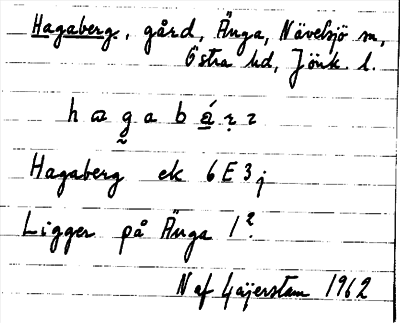 Hagaberg, gård, Änga, Nävelsjö sn,
Östra hd, Jönk. l.
Hagaberg ek 6E3j
Ligger på Änga 1².
N af Gäjerstam 1962